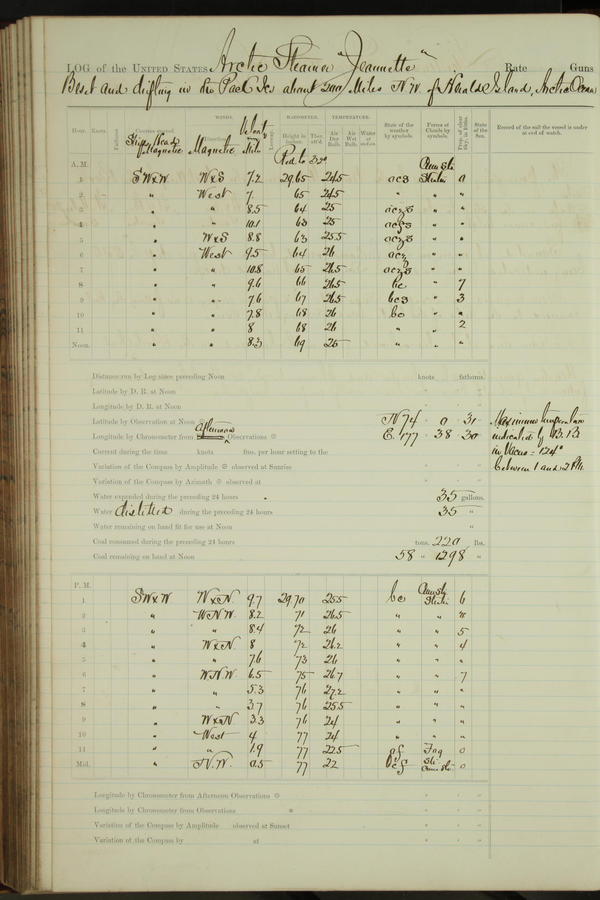 LOG of the UNITED STATES Arctic Steamer "Jeannette" Rate Guns
Beset and drifting in the Pack Ice about 200 Miles N.W. of Herald Island, Arctic Ocean
Hour. Knots. Fathoms. Ship's Head Magnetic WINDS. Magnetic Velocity Miles Leeway. BAROMETER. Height in inches. Ther. att'd. TEMPERATURE. Air Dry Bulb. Air Wet Bulb. Water at surface. State of the weather by symbols. Forms of Clouds by symbols. Prop. of clear sky, in 10ths. State of the Sea. Record of the sail the vessel is under at end of watch.
A.M. Red to 32° Cum Str
1 SWxW WxS 7.2 29.65 24.5 ocs Stratus 0
2 " West 7 65 24.5 " " "
3 " " 8.5 64 25 " "
4 " " 10.1 63 25 " "
5 " WxS 8.8 63 25.5 " "
6 " West 9.5 64 26 " "
7 " " 10.8 65 26.5 " "
8 " " 9.6 66 26.5 bc " 7
9 " " 7.6 67 26.5 bcs " 3
10 " " 7.8 68 26 bc " "
11 " " 8 68 26 " " 2
Noon. " " 8.3 69 25 " " "
Distance run by Log since preceding Noon knots fathoms.
Latitude by D. R. at Noon
Longitude by D. R. at Noon
Latitude by Observation at Noon N 74 0 31
Longitude by Chronometer from afternoon Observations E. 177 38 30
Current during the time knots fms. per hour setting to the
Variation of the Compass by Amplitude observed at Sunrise
Variation of the Compass by Azimuth observed at
Water expended during the preceding 24 hours 35 gallons.
Water distilled during the preceding 24 hours 35 "
Water remaining on hand fit for use at Noon "
Coal consumed during the preceding 24 hours tons. 220 lbs.
Coal remaining on hand at Noon 58 " 1298 "
Maximum temperature
indicated by B.B.
in Vacuo = 124°
between 1 and 2 P.M.
P.M. Cum Str
1 SWxW WxN 9.7 29.70 25.5 bc Stratus 6
2 " WNW 8.2 71 26.5 " " "
3 " " 8.4 72 26 " " 5
4 " WxN 8 72 26.2 " " 4
5 " " 7.6 73 26 " " "
6 " WNW 6.5 75 26.7 " " 7
7 " " 5.3 76 27.2 " " "
8 " " 3.7 76 25.5 " " "
9 " WxN 3.3 76 24 " " "
10 " West 4 77 24 " " "
11 " " 1.9 77 22.5 of Fog 0
Mid. " N.W. 0.5 77 22 bcf Str Cum Str 0
Longitude by Chronometer from Afternoon Observations
Longitude by Chronometer from Observations
Variation of the Compass by Amplitude observed at Sunset
Variation of the Compass by at